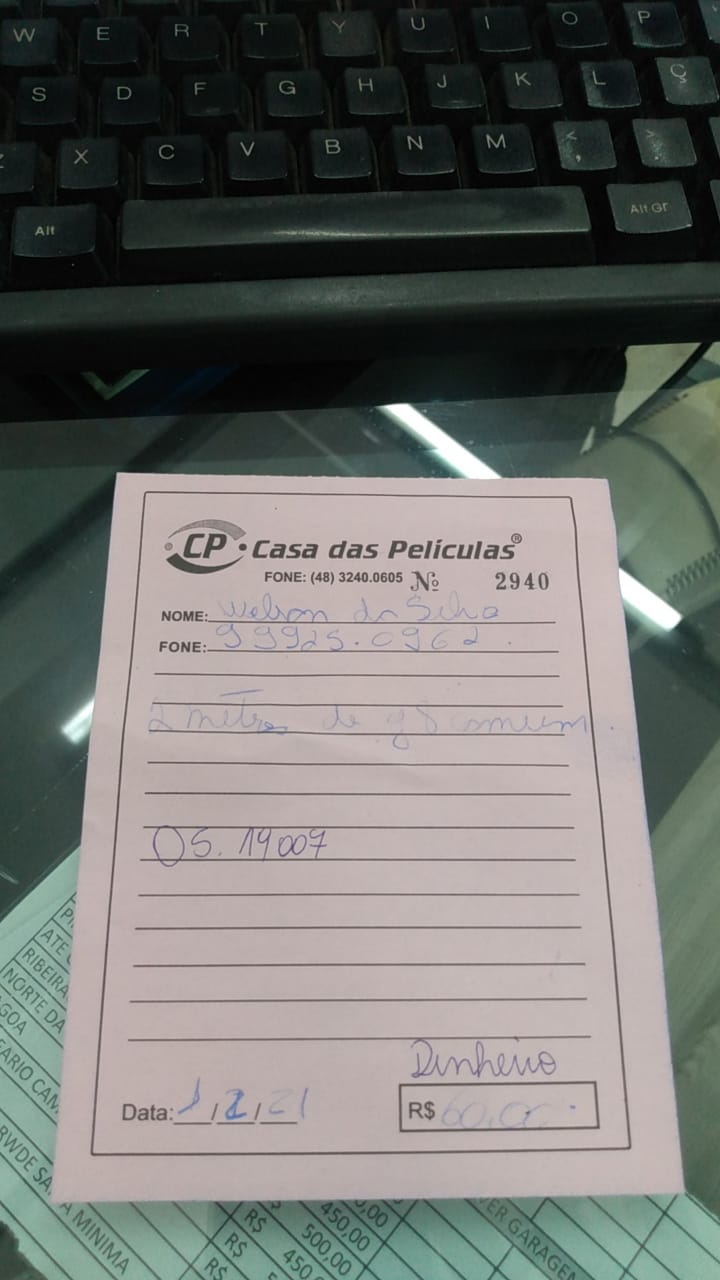 W E R T Y U I O P
S D F G H J K L Ç
Z X C V B N M < , > .
Alt Alt Gr
CP Casa das Películas®
FONE: (48) 3240.0605 Nº 2940
NOME: Welson da Silva
FONE: 99925.0962
2 metros de g8 comum.
OS. 19007
Dinheiro
Data: 1/2/21 R$ 60,00
ATE
RIBEIRA
NORTE DA
RWDE SA A MINIMA
R$ 450,00
R$ 500,00
R$ 450
VER GARAGEM